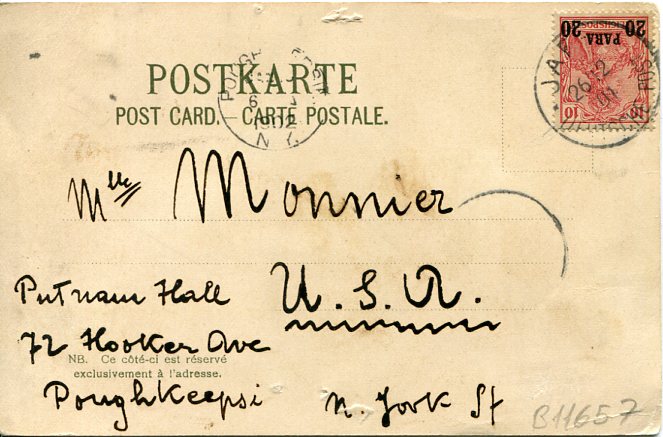 20 PARA 20
10 10
JAF
26 2
POSTKARTE
POST CARD.—CARTE POSTALE.
6
1902
N.Y.
Mlle Monnier
Putnam Hall U.S.A.
72 Hooker Ave
NB. Ce côté-ci est réservé
exclusivement à l'adresse.
Poughkeepsi N. York St
B11657